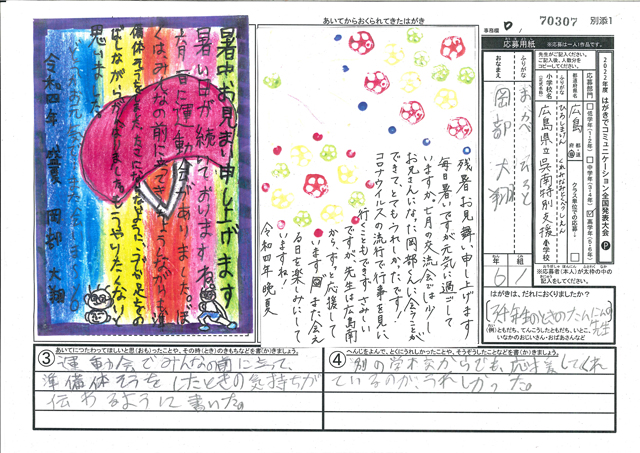 事務欄
70307
別添1
2022年度 はがきでコミュニケーション全国発表大会
応募用紙
※応募は一人1作品です。
先生がご記入ください。
ご記入後、人数分をコピーしてください。
応募部門
低学年(1・2年)
中学年(3・4年)
高学年(5・6年)
都道府県名
広島
小学校名
(正式名称)
ふりがな
広島県立呉南特別支援
小学校
ふりがな
おかべ
おなまえ
岡部 大翔
学年
6
組
1
※応募者(本人)が太枠の中の記入をしてください。
はがきは、だれにおくりましたか?
先生
(例)ともだち、てんこうしたともだち、いとこ、
いなかのおじいさん・おばあさんなど
あいてからおくられてきたはがき
残暑お見舞い申し上げます
毎日暑いですが元気に過ごして
いますか。七月の交流会では少し
お兄さんになった岡部くんに会うことが
できて、とてもうれしかったです!
コロナウイルスの流行で行事を見に
行くこともできず、さみしい
ですが、先生は広島南
からずっと応援して
います。また会え
る日を楽しみにして
いますね!
令和四年 晩夏
暑中お見まい申し上げます
暑い日が続いておりますね。
六月に運動会がありました。ぼ
くはみんなの前に立って
思いました。
令和四年 盛夏
岡部 大翔
③ あいてにつたわってほしいと思(おも)ったことや、その時(とき)のきもちなどを書(か)きましょう。
運動会でみんなの前に立って、
準備体そうをしたときの気持ちが
伝わるように書いた。
④ へんじをよんで、とくにうれしかったことや、そうぞうしたことなどを書(か)きましょう。
別の学校からでも、応援してくれ
ているのが、うれしかった。